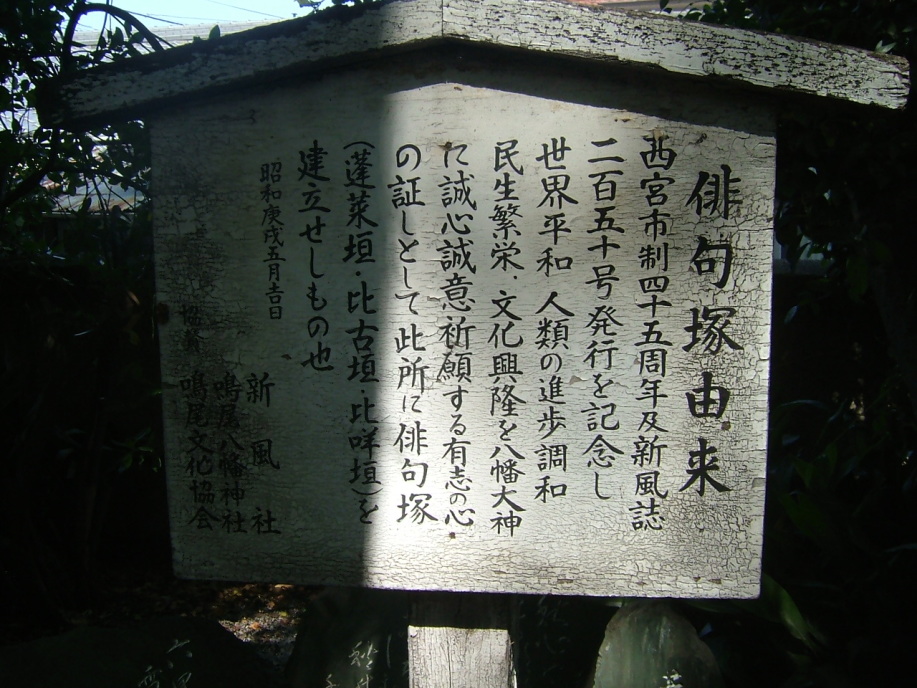 俳句塚由来
西宮市制四十五周年及新風誌
二百五十号発行を記念し
世界平和 人類の進歩調和
民生繁栄・文化興隆を八幡大神
に誠心誠意祈願する有志の心
の証しとして此所に俳句塚
(蓬莱垣・比古垣・比咩垣)を
建立せしもの也
昭和庚戌五月吉日
新風社
鳴尾八幡神社
鳴尾文化協会